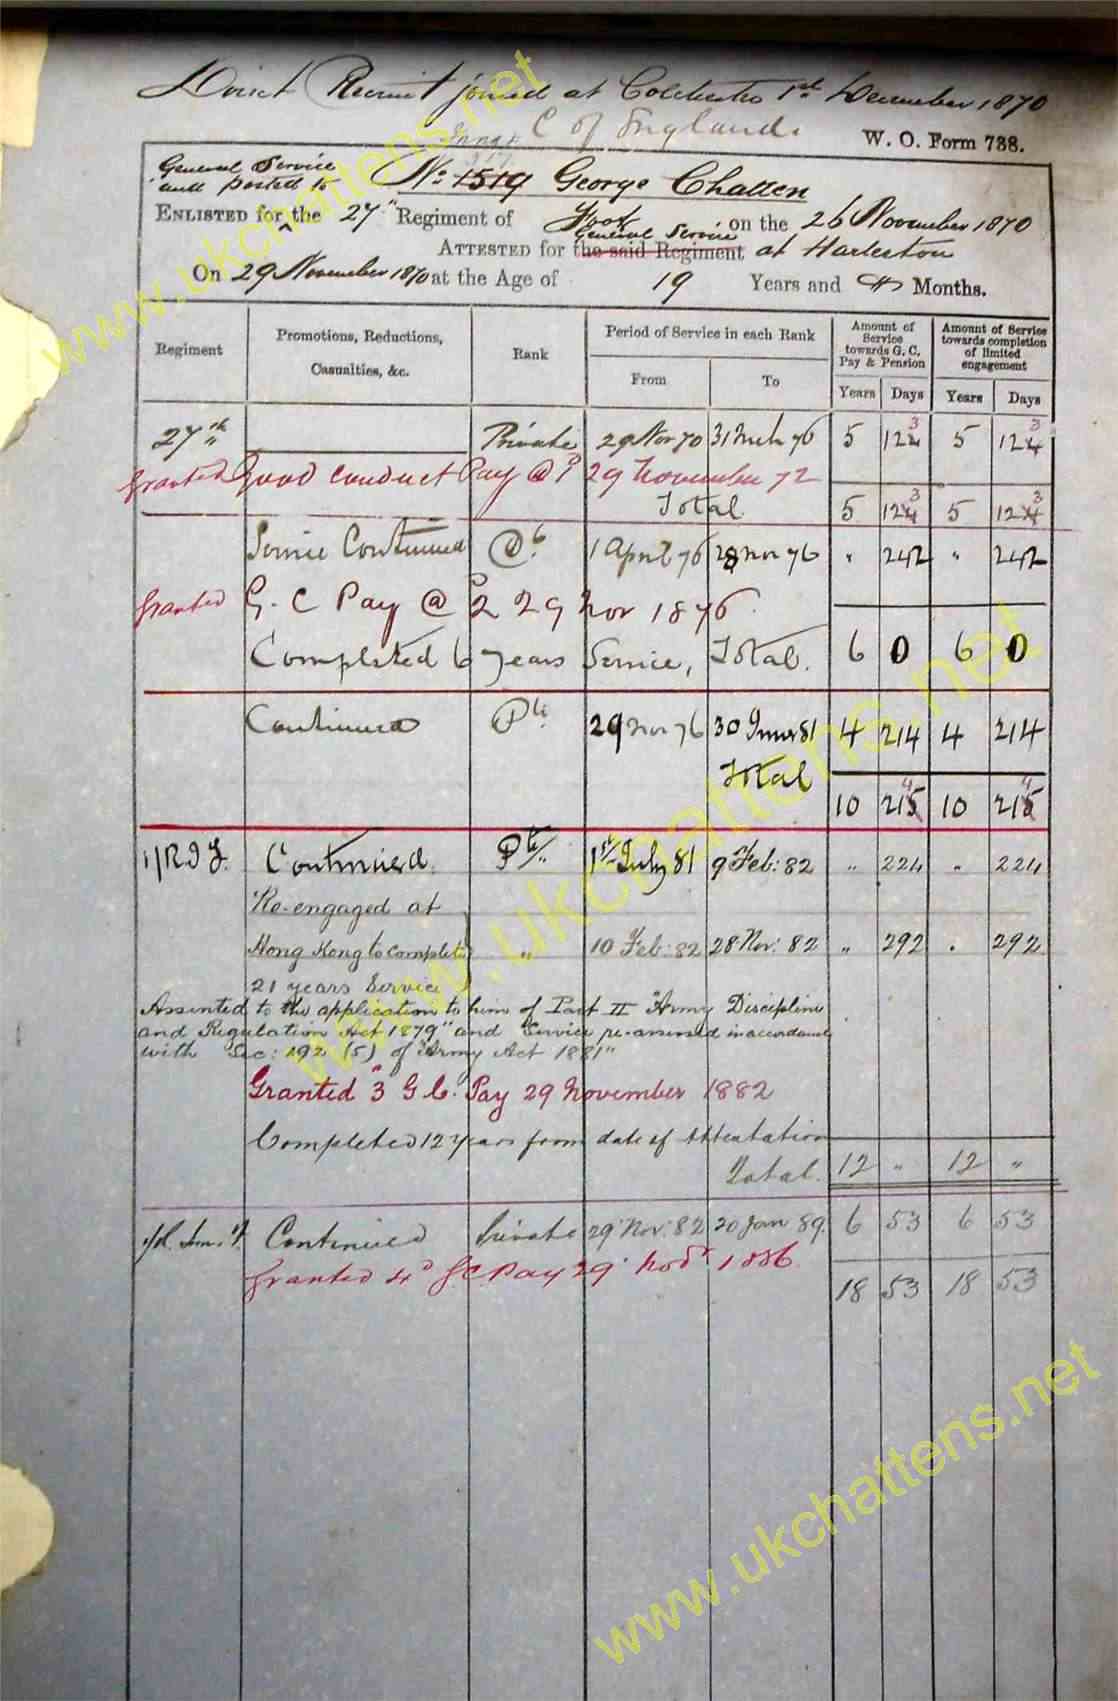 Direct Recruit joined at Colchester 1st December 1870
C of England.
W. O. Form 738.
General Service and posted to
No 1519 George Chatten
ENLISTED for the 27th Regiment of Foot on the 26 November 1870
General Service
ATTESTED for the said Regiment at Harleston
On 29 November 1870 at the Age of 19 Years and Months.
Regiment
Promotions, Reductions, Casualties, &c.
Rank
Period of Service in each Rank
From
To
Amount of Service towards G. C. Pay & Pension
Years Days
Amount of Service towards completion of limited engagement
Years Days
27th Private 29 Nov 70 31 Mch 76 5 123 5 123
Granted Good Conduct Pay @ 1d 29 November 72
Total 5 123 5 123
Service Continued Do 1 April 76 28 Nov 76 " 242 " 242
Granted G. C Pay @ 2 29 Nov 1876
Completed 6 years Service, Total. 6 0 6 0
Continued Pte 29 Nov 76 30 June 81 4 214 4 214
Total 10 214 10 214
1/R.I.F. Continued. Pte 1st July 81 9 Feb: 82 " 224 " 224
Re-engaged at
Hong Kong to complete " 10 Feb: 82 28 Nov: 82 " 292 " 292
21 years Service
Assented to the application to him of Part II "Army Discipline
and Regulation Act 1879" and Service re-assessed in accordance
with Sec: 192 (5) of "Army Act 1881"
Granted 3 G C. Pay 29 November 1882
Completed 12 years from date of Attestation
Total. 12 " 12 "
Continued Private 29 Nov: 82 20 Jan 89. 6 53 6 53
Granted 4d G C Pay 29 Novr 1886.
18 53 18 53
www.ukchattens.net
www.ukchattens.net
www.ukchattens.net